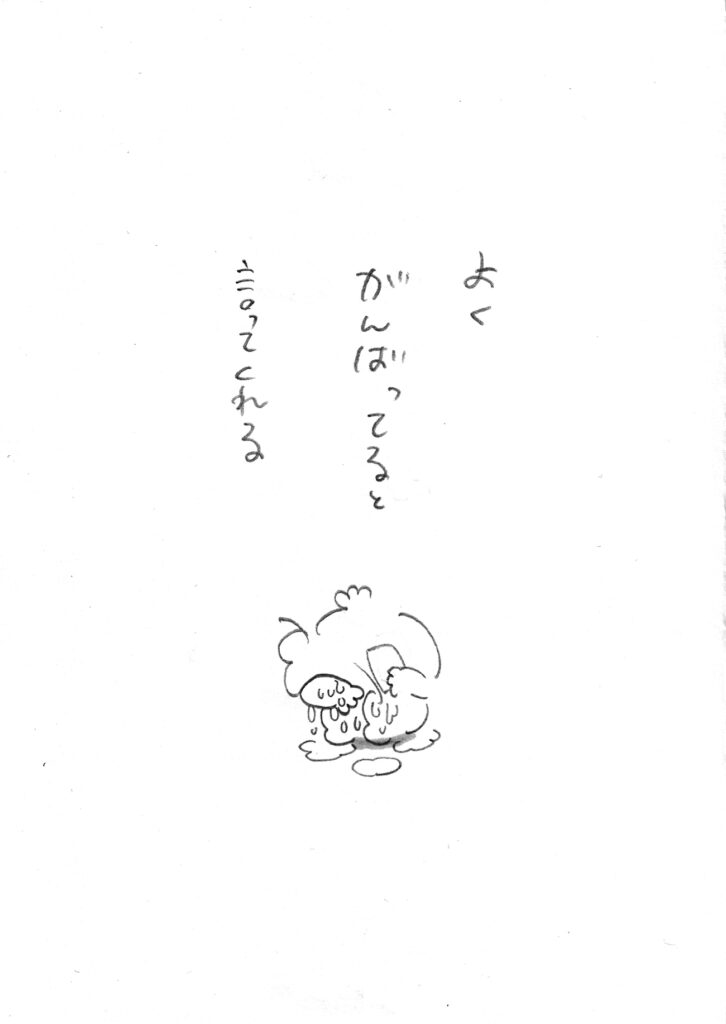 よく
がんばってると
言ってくれる